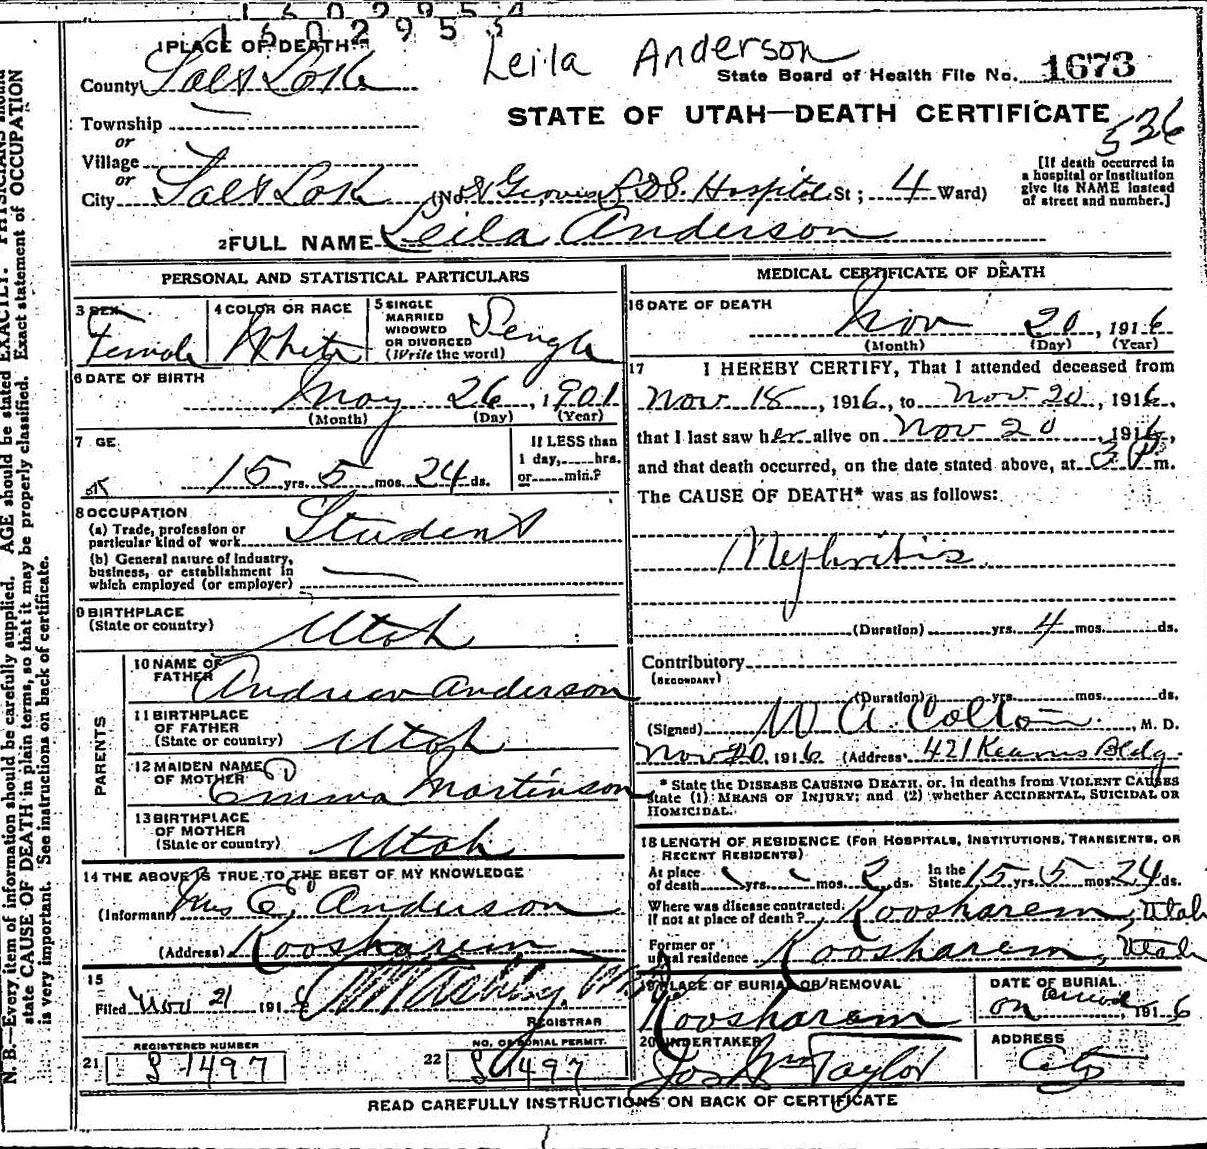 1602954
1602953
1 PLACE OF DEATH
Leila Anderson
County Salt Lake
State Board of Health File No. 1673
STATE OF UTAH—DEATH CERTIFICATE
536
Township
or
Village
or
City Salt Lake (No. L.D.S. Hospital St; 4 Ward)
[If death occurred in
a hospital or institution
give its NAME instead
of street and number.]
2 FULL NAME Leila Anderson
PERSONAL AND STATISTICAL PARTICULARS
3 SEX Female
4 COLOR OR RACE White
5 SINGLE
MARRIED
WIDOWED
OR DIVORCED
(Write the word) Single
6 DATE OF BIRTH
May 26, 1901
(Month) (Day) (Year)
7 GE
15 yrs. 5 mos. 24 ds.
If LESS than
1 day, hrs.
or min.?
8 OCCUPATION
(a) Trade, profession or
particular kind of work Student
(b) General nature of industry,
business, or establishment in
which employed (or employer)
9 BIRTHPLACE
(State or country) Utah
PARENTS
10 NAME OF
FATHER Andrew Anderson
11 BIRTHPLACE
OF FATHER
(State or country) Utah
12 MAIDEN NAME
OF MOTHER Emma Martinson
13 BIRTHPLACE
OF MOTHER
(State or country) Utah
14 THE ABOVE IS TRUE TO THE BEST OF MY KNOWLEDGE
(Informant) Mrs E. Anderson
(Address) Koosharem
15
Filed Nov 21 1916
REGISTRAR
21 REGISTERED NUMBER
S 1497
22 NO. OF BURIAL PERMIT.
S 1497
MEDICAL CERTIFICATE OF DEATH
16 DATE OF DEATH
Nov 20, 1916
(Month) (Day) (Year)
17 I HEREBY CERTIFY, That I attended deceased from
Nov 18, 1916, to Nov 20, 1916,
that I last saw her alive on Nov 20, 1916,
and that death occurred, on the date stated above, at 3 P m.
The CAUSE OF DEATH* was as follows:
Nephritis.
(Duration) yrs. 4 mos. ds.
Contributory
(SECONDARY)
(Duration) yrs. mos. ds.
(Signed) W A. Colton. M. D.
Nov 20, 1916 (Address 421 Kearns Bldg.
* State the DISEASE CAUSING DEATH, or, in deaths from VIOLENT CAUSES
state (1) MEANS OF INJURY; and (2) whether ACCIDENTAL, SUICIDAL OR
HOMICIDAL.
18 LENGTH OF RESIDENCE (FOR HOSPITALS, INSTITUTIONS, TRANSIENTS, OR
RECENT RESIDENTS)
At place
of death yrs. mos. 2 ds. In the
State 15 yrs. 5 mos. 24 ds.
Where was disease contracted,
if not at place of death? Koosharem, Utah
Former or
usual residence Koosharem, Utah
19 PLACE OF BURIAL OR REMOVAL
Koosharem
DATE OF BURIAL
on arrival, 1916
20 UNDERTAKER
Jos Wm Taylor
ADDRESS
City
READ CAREFULLY INSTRUCTIONS ON BACK OF CERTIFICATE
N. B.—Every item of information should be carefully supplied. AGE should be stated EXACTLY. PHYSICIANS should
state CAUSE OF DEATH in plain terms, so that it may be properly classified. Exact statement of OCCUPATION
is very important. See instructions on back of certificate.